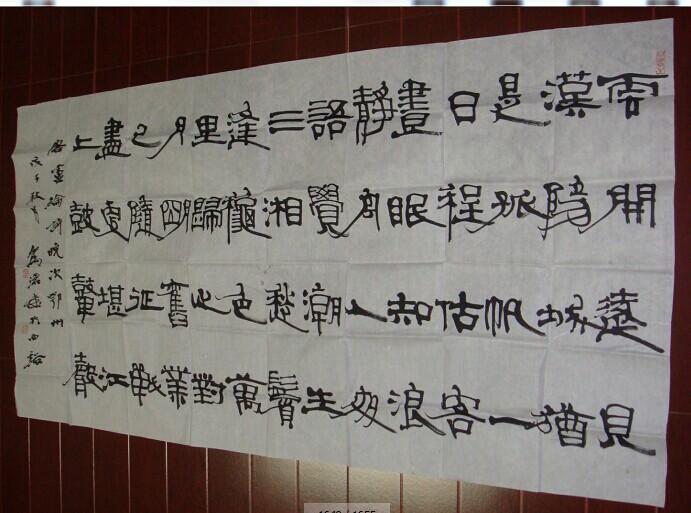 雲開遠見
漢陽城猶
是孤帆一
日程估客
晝眠知浪
靜舟人夜
語覺潮生
三湘愁鬢
逢秋色萬
里歸心對
月明舊業
已隨征戰
盡更堪江
上鼓鼙聲
盧綸詩晚次鄂州
戊子秋